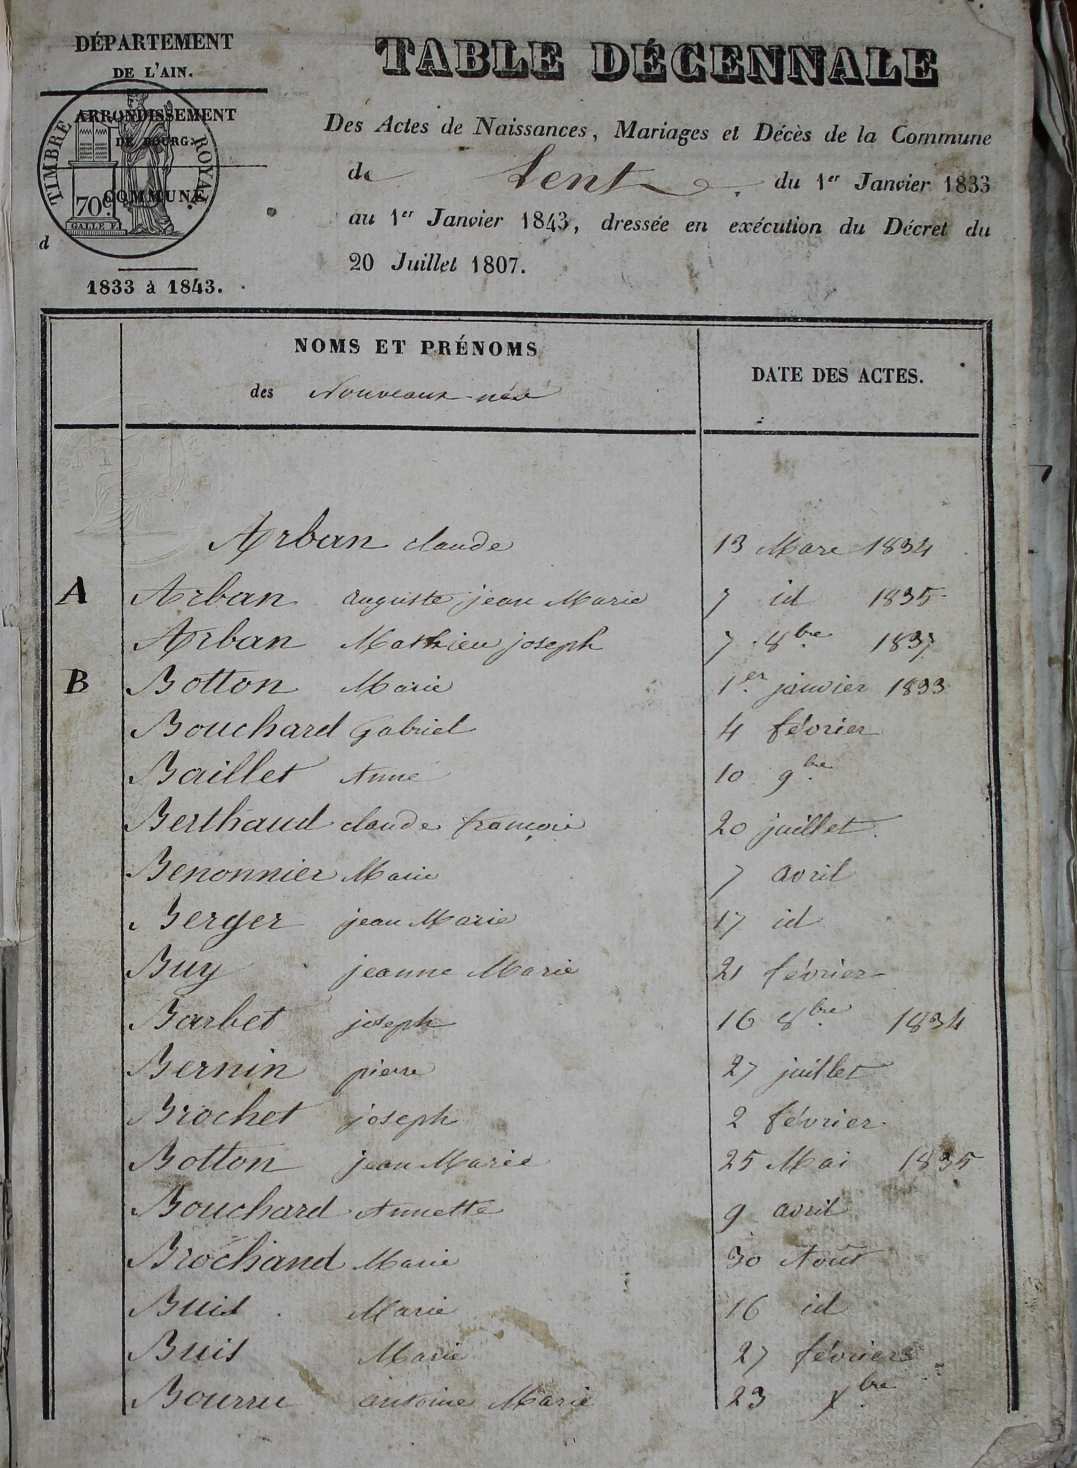 DÉPARTEMENT
DE L'AIN.
ARRONDISSEMENT
DE BOURG.
COMMUNE
d
TIMBRE ROYAL
70c.
1833 à 1843.
TABLE DÉCENNALE
Des Actes de Naissances, Mariages et Décès de la Commune
de Lent du 1er Janvier 1833
au 1er Janvier 1843, dressée en exécution du Décret du
20 Juillet 1807.
NOMS ET PRÉNOMS
des Nouveaux-nés
DATE DES ACTES.
Arban claude 13 Mars 1834
A Arban auguste jean Marie 7 id 1835
Arban Mathieu joseph 7 8bre 1837
B Botton Marie 1er janvier 1833
Bouchard Gabriel 4 février
Baillet Anne 10 9bre
Berthaud claude françois 20 juillet
Benonnier Marie 7 avril
Berger jean Marie 17 id
Buy jeanne Marie 21 février
Barbet joseph 16 8bre 1834
Bernin pierre 27 juillet
Brochet joseph 2 février
Botton jean Marie 25 Mai 1835
Bouchard Annette 9 avril
Brochand Marie 30 Août
Buis Marie 16 id
Buis Marie 27 février
Bourru antoine Marie 23 Xbre